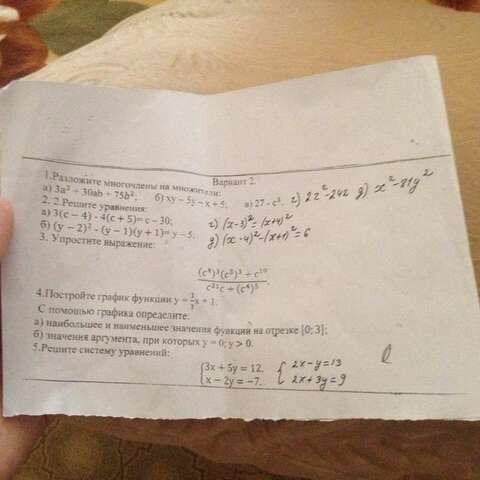 Вариант 2.
1.Разложите многочлены на множители:
а) 3a² + 30ab + 75b²; б) xy – 5y – x + 5; в) 27 - c³, г) 2z² - 242 д) x² - 81y²
2. 2.Решите уравнения:
а) 3(c – 4) - 4(c + 5)= c – 30; г) (x-3)² = (x+4)²
б) (y – 2)² - (y – 1)(y + 1)= y – 5. д) (x-4)² - (x+1)² = 6
3. Упростите выражение:
(c⁴)³(c²)³ ÷ c¹⁰
c²¹c ÷ (c⁴)⁵
4.Постройте график функции y = ⅓x + 1.
С помощью графика определите:
а) наибольшее и наименьшее значения функции на отрезке [0; 3];
б) значения аргумента, при которых y = 0; y > 0.
5.Решите систему уравнений:
{3x + 5y = 12, { 2x - y = 13
{x – 2y = –7. { 2x + 3y = 9